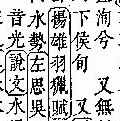 洶兮 又無
下侯旬 又
揚雄羽獵賦
水勢 左思吳
音光 說文水